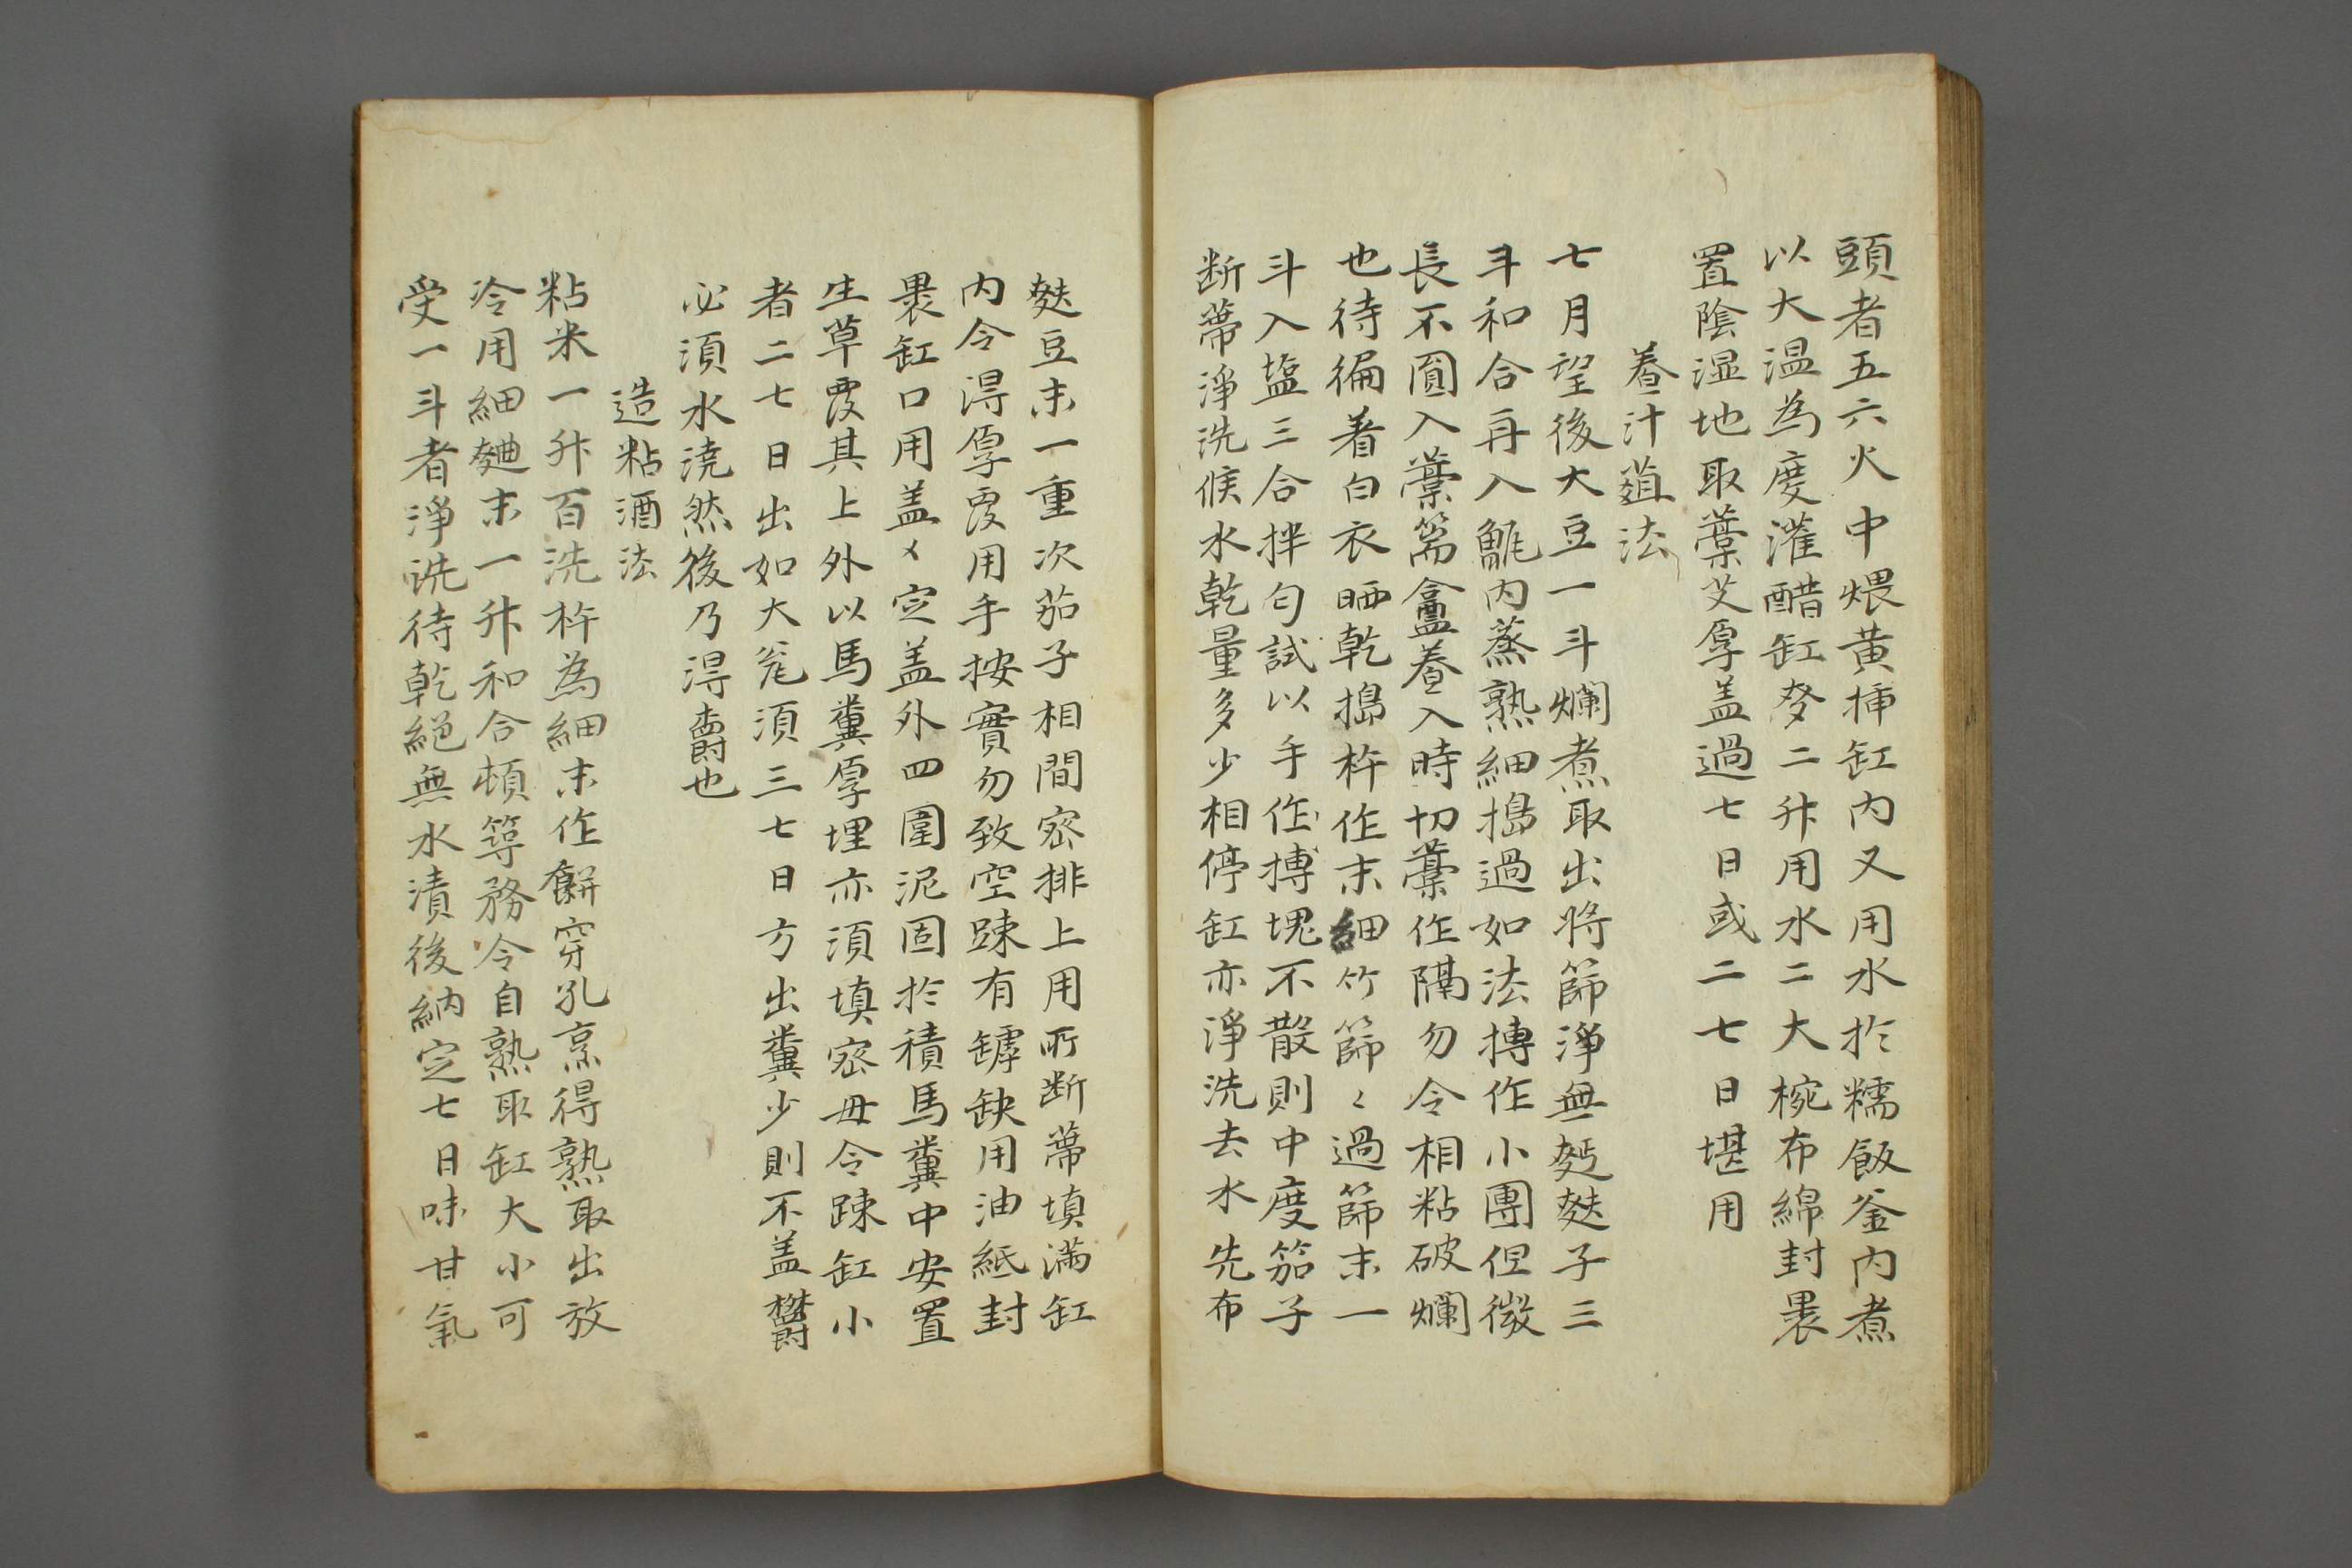 頭者五六火中煨黄揷缸内又用水扵糯飯釜内煮
以大温為度灌醋缸麥二升用水二大椀布綿封褁
置陰湿地取藁艾厚盖過七日或二七日堪用
養汁葅法
七月望後大豆一斗爛煮取出将篩淨無麫麩子三
斗和合再入甑内蒸熟細搗過如法摶作小團但微
長不圓入藁篅盦養入時切藁作隔勿令相粘破爛
也待徧着白衣晒乾搗杵作末細竹篩〻過篩末一
斗入塩三合拌匀試以手作摶塊不散則中度茄子
断蔕淨洗候水乾量多少相停缸亦淨洗去水先布
麩豆末一重次茄子相間宻排上用所断蔕填滿缸
内令淂厚覆用手按實勿致空踈有罅缺用油紙封
褁缸口用盖〻定盖外四圍泥固扵積馬糞中安置
生草覆其上外以馬糞厚埋亦湏填宻毋令踈缸小
者二七日出如大瓮湏三七日方出糞少則不盖欝
必湏水澆然後乃淂欝也
造粘酒法
粘米一升百洗杵為細末作餠穿孔烹得熟取出放
冷用細麯末一升和合頓䓁務令自熟取缸大小可
受一斗者淨洗待乾絕無水漬後納定七日味甘氣